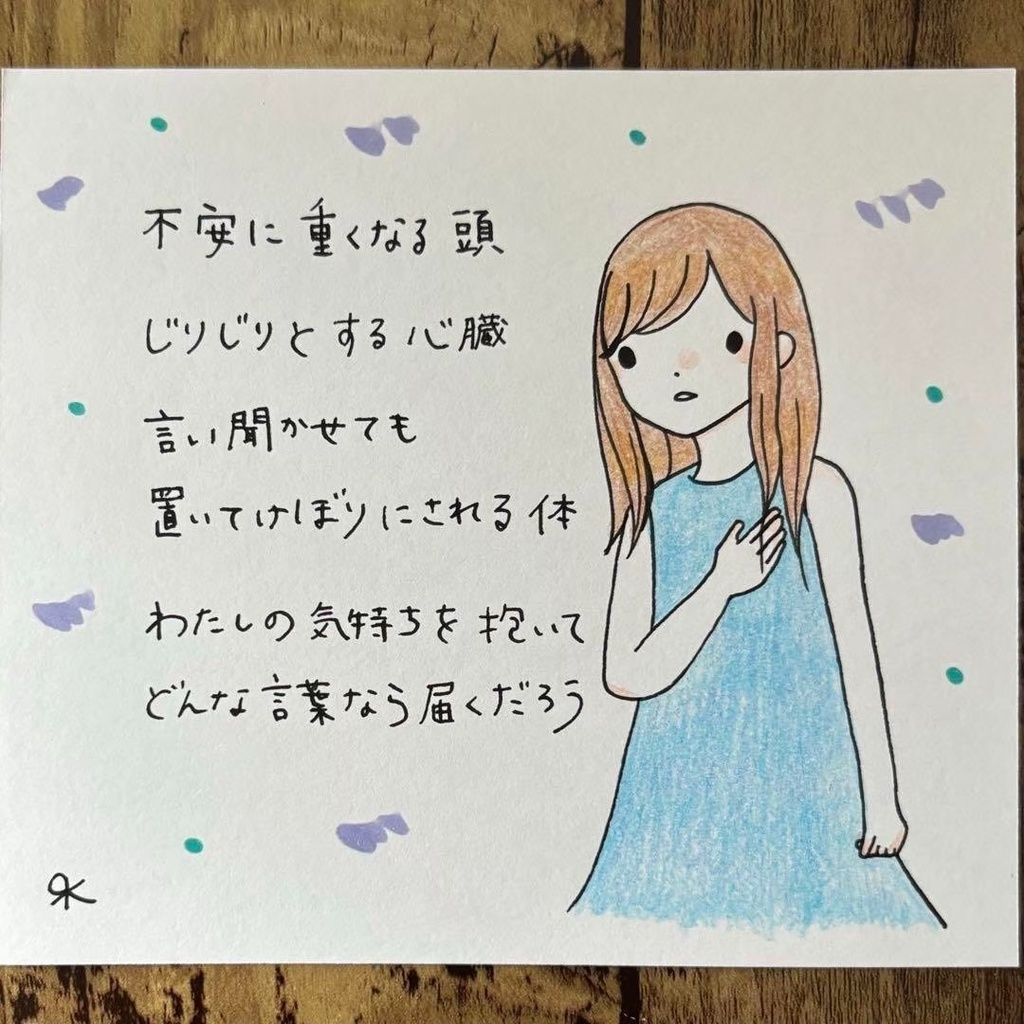 不安に重くなる頭
じりじりとする心臓
言い聞かせても
置いてけぼりにされる体
わたしの気持ちを抱いて
どんな言葉なら届くだろう